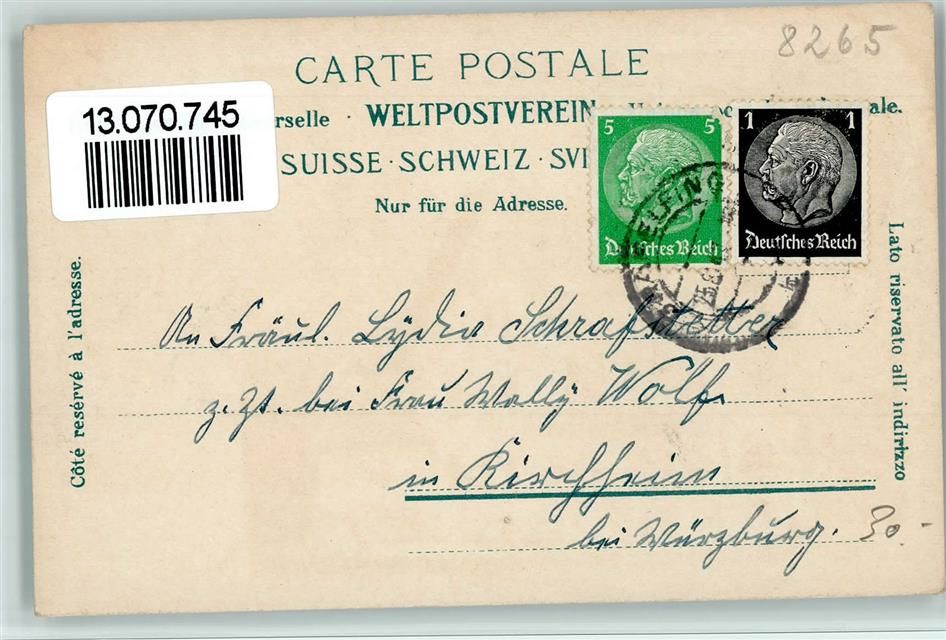 8265
CARTE POSTALE
13.070.745
rselle · WELTPOSTVEREIN ale.
SUISSE · SCHWEIZ · SVI
Nur für die Adresse.
5 5
Deutsches Reich
1 1
Deutsches Reich
Côté resérvé à l'adresse.
Lato riservato all' indirizzo
An Fräul. Lydia Schrafstetter
z. Zt. bei Frau Wally Wolf
in Kirchheim
bei Würzburg.
30.-